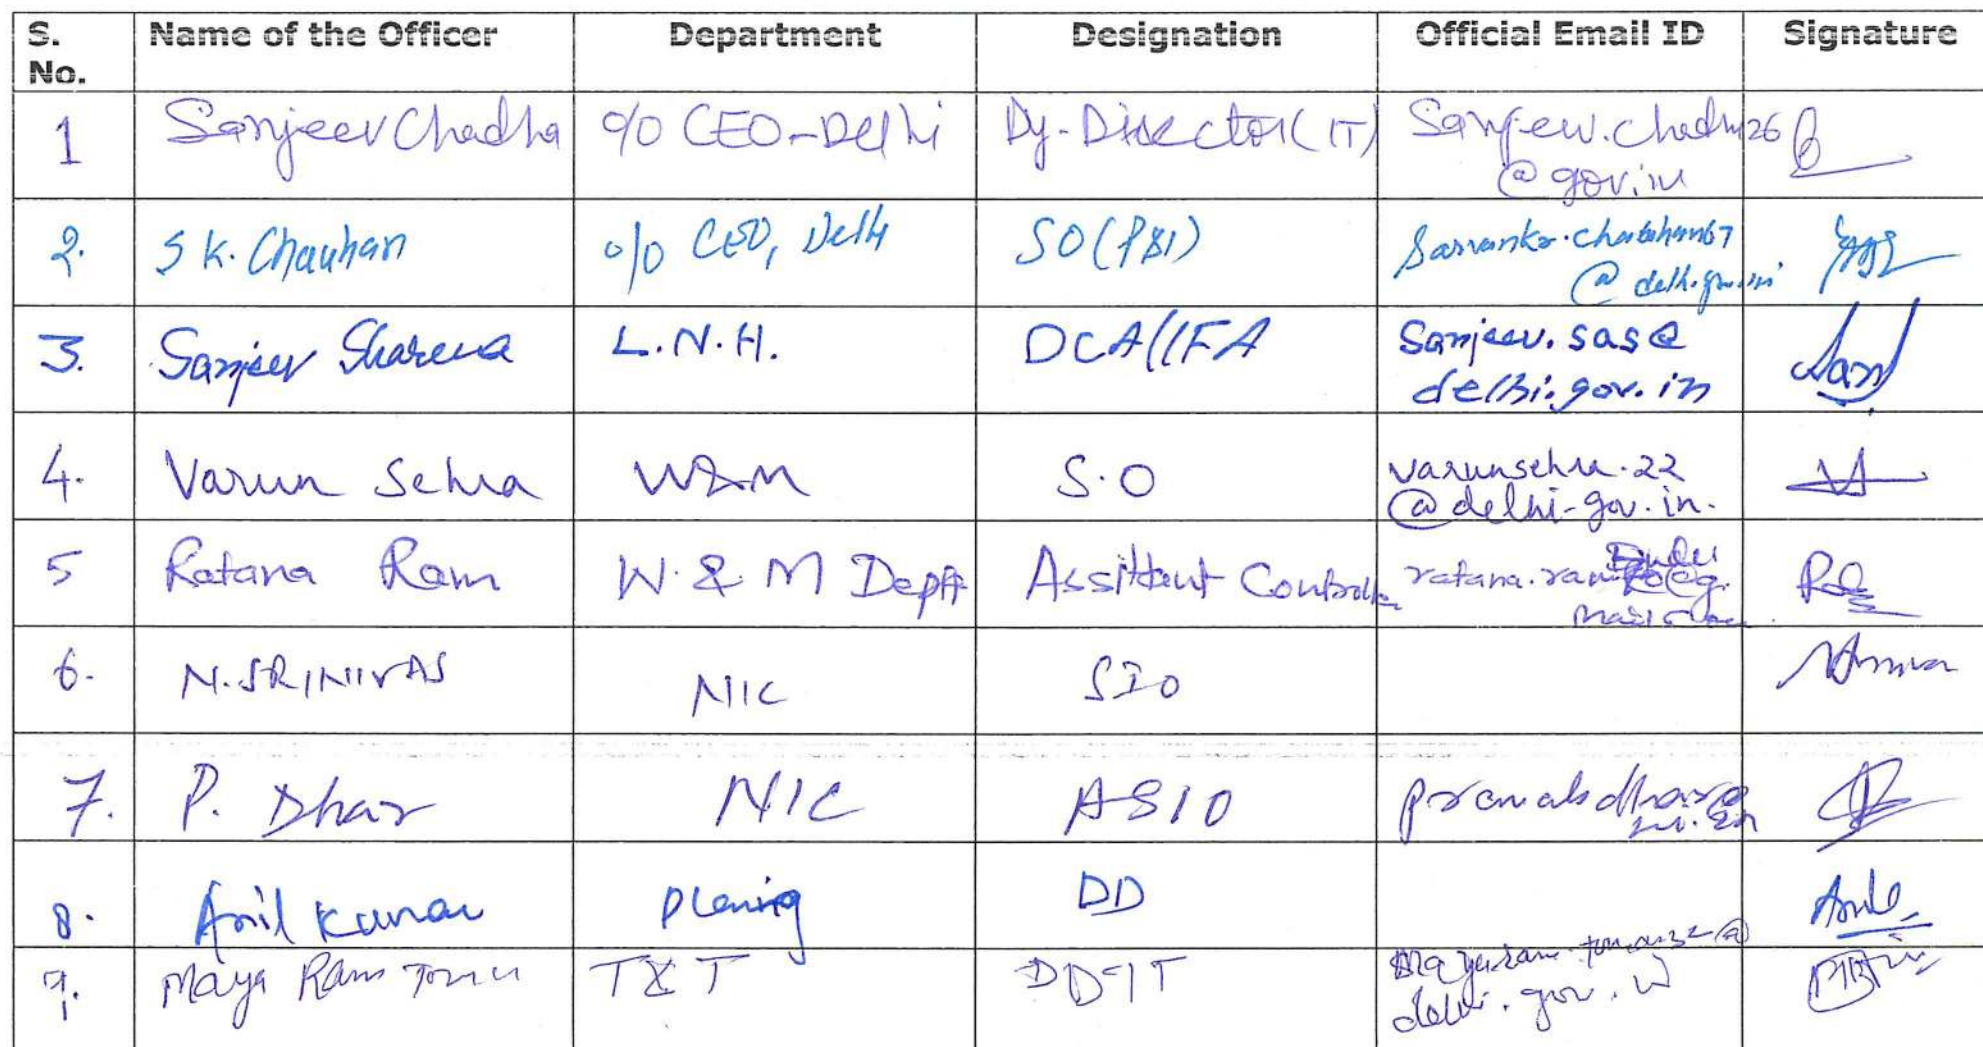 S. No. Name of the Officer Department Designation Official Email ID Signature
1 Sanjeev Chadha O/o CEO-Delhi Dy-Director(IT) Sanjeev.chadha26
@gov.in
2. S K. Chauhan O/o CEO, Delhi SO(PBI)
3. Sanjeev Sharma L.N.H. DCA/IFA Sanjeev.sas@
delhi.gov.in
4. Varun Sehra W&M S.O varunsehra.22
@delhi-gov.in.
5 Ratana Ram W. & M Deptt Assittant Controller ratana.ram
6. N. SRINIVAS NIC SIO
7. P. Dhar NIC ASIO
8. Anil Kumar Planing DD
9. Maya Ram T&T DD-IT
delhi.gov.in